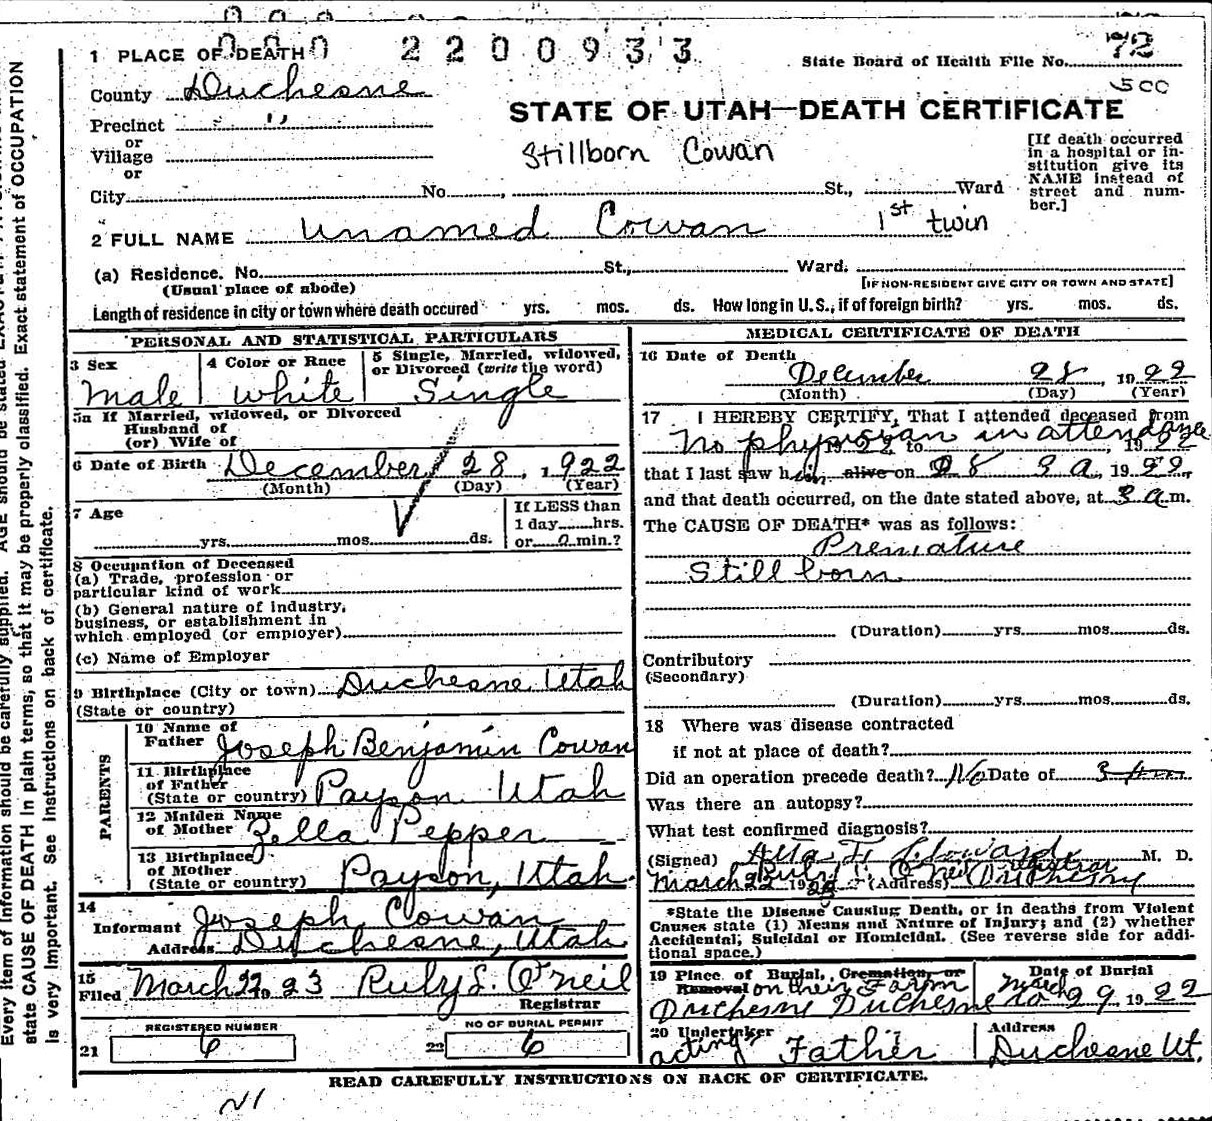 000 2200933
1 PLACE OF DEATH
State Board of Health File No. 72
County Duchesne
500
STATE OF UTAH—DEATH CERTIFICATE
Precinct "
or
Village
or
Stillborn Cowan
[If death occurred
in a hospital or in-
stitution give its
NAME instead of
street and num-
ber.]
City No. , St., Ward
2 FULL NAME Unamed Cowan 1st twin
(a) Residence. No. St., Ward.
(Usual place of abode) [IF NON-RESIDENT GIVE CITY OR TOWN AND STATE]
Length of residence in city or town where death occured yrs. mos. ds. How long in U.S., if of foreign birth? yrs. mos. ds.
PERSONAL AND STATISTICAL PARTICULARS
3 Sex
Male
4 Color or Race
White
5 Single, Married, widowed,
or Divorced (write the word)
Single
5a If Married, widowed, or Divorced
Husband of
(or) Wife of
6 Date of Birth December 28, 1922
(Month) (Day) (Year)
7 Age
yrs. mos. ds.
If LESS than
1 day hrs.
or 0 min.?
8 Occupation of Deceased
(a) Trade, profession or
particular kind of work
(b) General nature of industry,
business, or establishment in
which employed (or employer)
(c) Name of Employer
9 Birthplace (City or town) Duchesne Utah
(State or country)
PARENTS
10 Name of
Father Joseph Benjamin Cowan
11 Birthplace
of Father
(State or country) Payson Utah
12 Maiden Name
of Mother Zella Pepper
13 Birthplace
of Mother
(State or country) Payson, Utah.
14
Informant Joseph Cowan
Address Duchesne, Utah
15
Filed March 22 1923 Ruby S. O'neil
Registrar
REGISTERED NUMBER
21 6
NO OF BURIAL PERMIT
22 6
MEDICAL CERTIFICATE OF DEATH
16 Date of Death
December 28, 1922
(Month) (Day) (Year)
17 I HEREBY CERTIFY, That I attended deceased from
No physician in attendance
1922 to , 1922
that I last saw him alive on 28 3a, 1922,
and that death occurred, on the date stated above, at 3 a m.
The CAUSE OF DEATH* was as follows:
Premature
Still born
(Duration) yrs. mos. ds.
Contributory
(Secondary)
(Duration) yrs. mos. ds.
18 Where was disease contracted
if not at place of death?
Did an operation precede death? No Date of
Was there an autopsy?
What test confirmed diagnosis?
(Signed) M. D.
March 22 1923 (Address) Duchesne
*State the Disease Causing Death, or in deaths from Violent
Causes state (1) Means and Nature of Injury; and (2) whether
Accidental, Suicidal or Homicidal. (See reverse side for addi-
tional space.)
19 Place of Burial, Cremation, or
Removal on their Farm
Duchesne Duchesne Co
Date of Burial
29, 1922
20 Undertaker
acting Father
Address
Duchesne Ut.
READ CAREFULLY INSTRUCTIONS ON BACK OF CERTIFICATE.
N1
Every item of information should be carefully supplied. AGE should be stated EXACTLY.
state CAUSE OF DEATH in plain terms, so that it may be properly classified. Exact statement of OCCUPATION
is very important. See instructions on back of certificate.